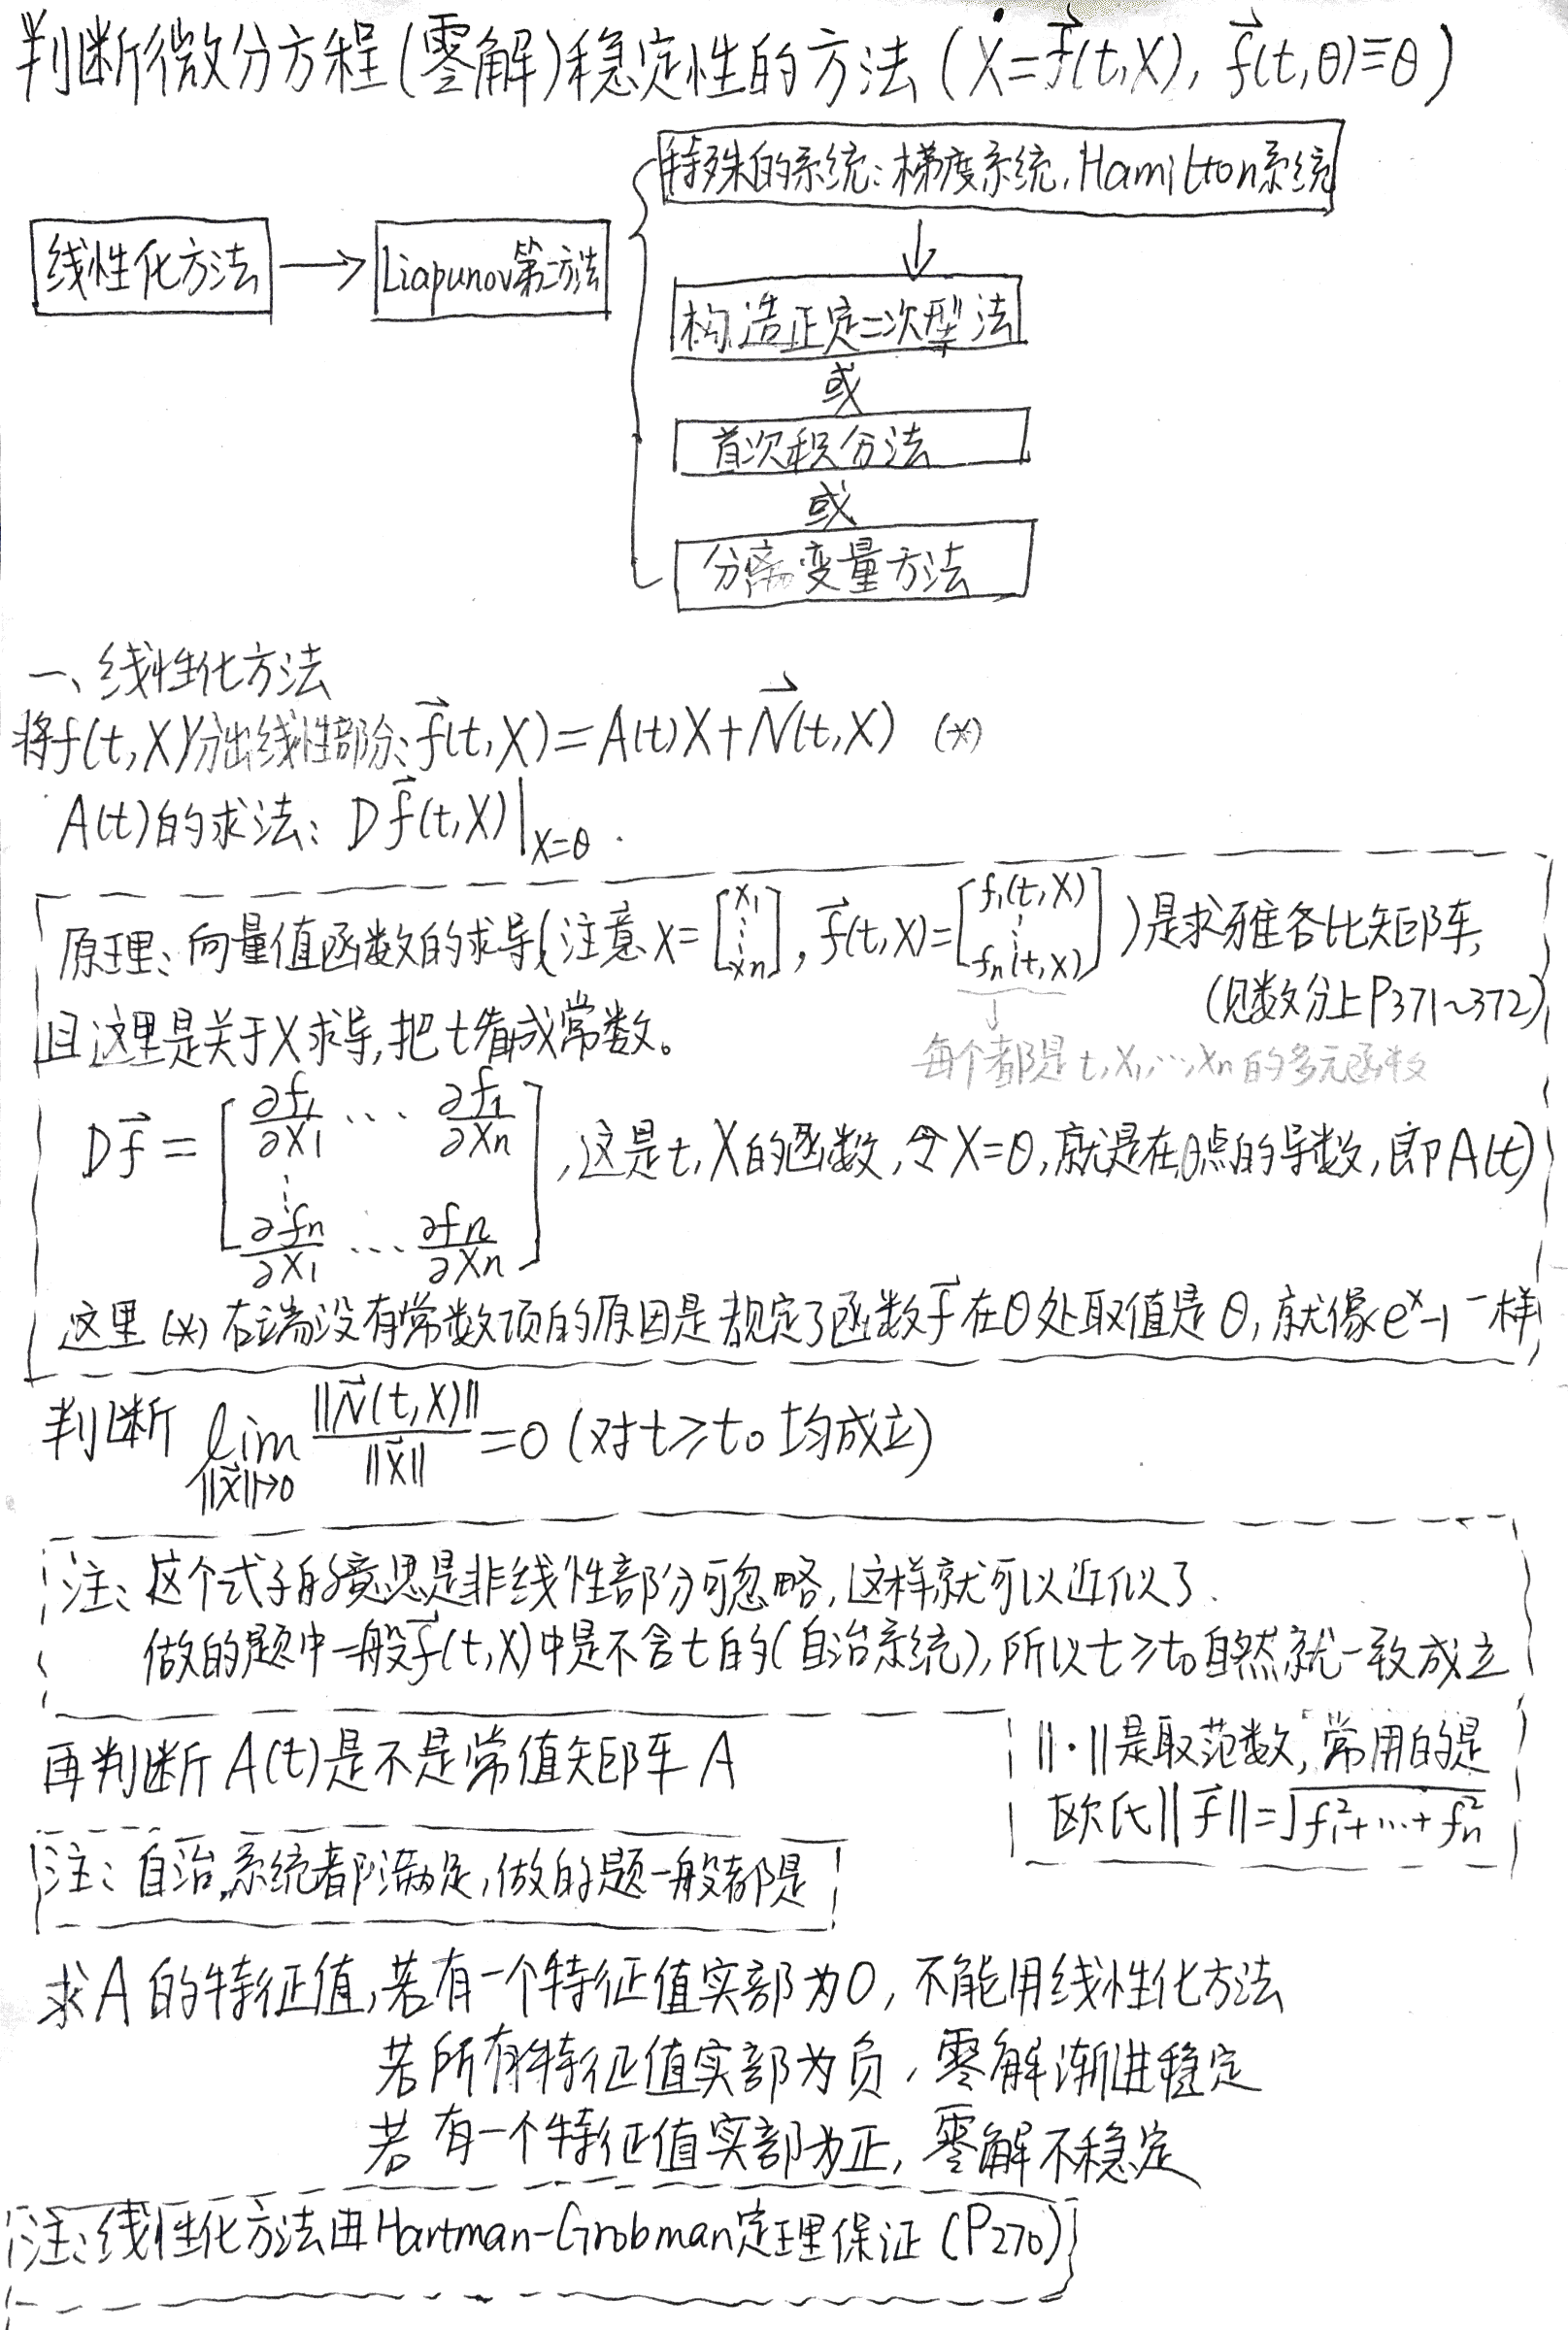 判断微分方程(零解)稳定性的方法(Ẋ=f⃗(t,X), f⃗(t,θ)≡θ)
特殊的系统:梯度系统,Hamilton系统
线性化方法 → Liapunov第二方法
↓
构造正定二次型法
或
首次积分法
或
分离变量方法
一、线性化方法
将f(t,X)分出线性部分:f⃗(t,X)=A(t)X+N⃗(t,X) (*)
A(t)的求法:Df⃗(t,X)|X=θ.
原理:向量值函数的求导(注意X=[x1 ⋮ xn], f⃗(t,X)=[f1(t,X) ⋮ fn(t,X)])是求雅各比矩阵,
(见数分上P371~372)
且这里是关于X求导,把t看成常数。
每个都是t,X1,…,Xn的多元函数
Df⃗=[∂f1/∂X1 … ∂f1/∂Xn ⋮ ∂fn/∂X1 … ∂fn/∂Xn],这是t,X的函数,令X=θ,就是在θ点的导数,即A(t)
这里(*)右端没有常数项的原因是规定了函数f⃗在θ处取值是θ,就像e^x-1一样
判断 lim ‖X⃗‖→0 ‖N⃗(t,X)‖/‖X⃗‖=0(对t≥t0均成立)
注:这个式子的意思是非线性部分可忽略,这样就可以近似了.
做的题中一般f⃗(t,X)中是不含t的(自治系统),所以t≥t0自然就一致成立
再判断A(t)是不是常值矩阵A
‖·‖是取范数,常用的是
欧氏‖f⃗‖=√(f1²+…+fn²)
注:自治系统都满足,做的题一般都是
求A的特征值,若有一个特征值实部为0,不能用线性化方法
若所有特征值实部为负,零解渐进稳定
若有一个特征值实部为正,零解不稳定
注:线性化方法由Hartman-Grobman定理保证(P270)